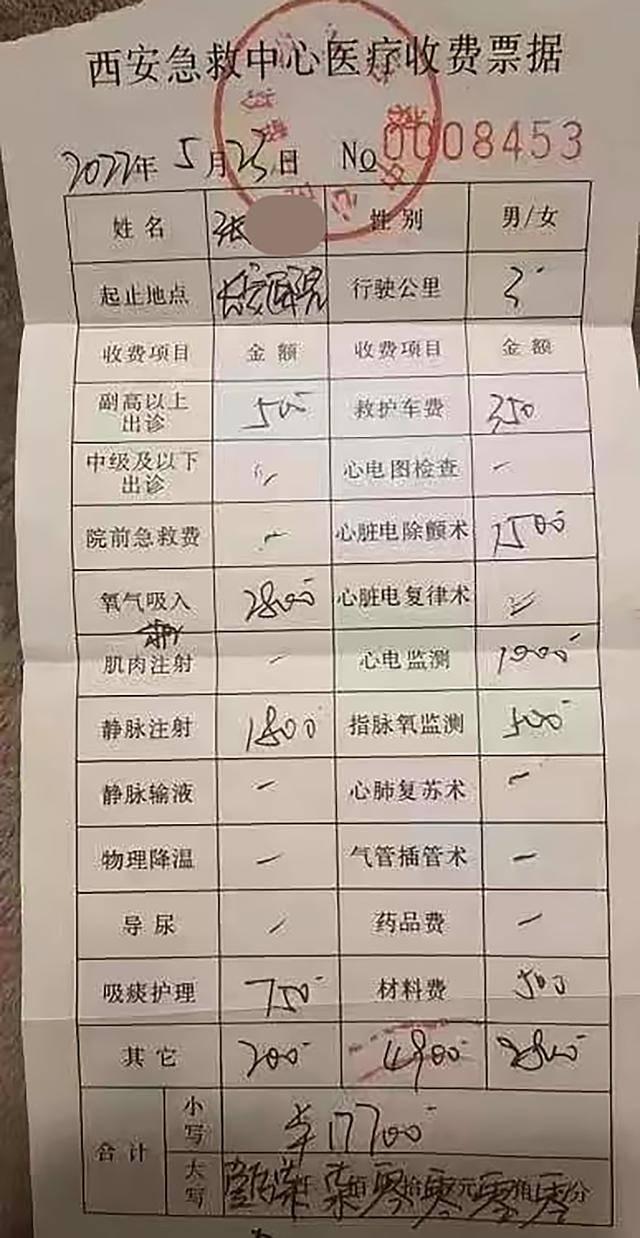 西安急救中心医疗收费票据
2022年5月25日 No 0008453
姓名 张 性别 男/女
起止地点 长安医院 行驶公里 3
收费项目 金额 收费项目 金额
副高以上出诊 500 救护车费 350
中级及以下出诊 心电图检查
院前急救费 心脏电除颤术 1500
氧气吸入 2800 心脏电复律术
肌肉注射 心电监测 1000
静脉注射 1800 指脉氧监测 500
静脉输液 心肺复苏术
物理降温 气管插管术
导尿 药品费
吸痰护理 750 材料费 500
其它 200 4900
合计 小写 ¥17700
大写 零 零元零 零分